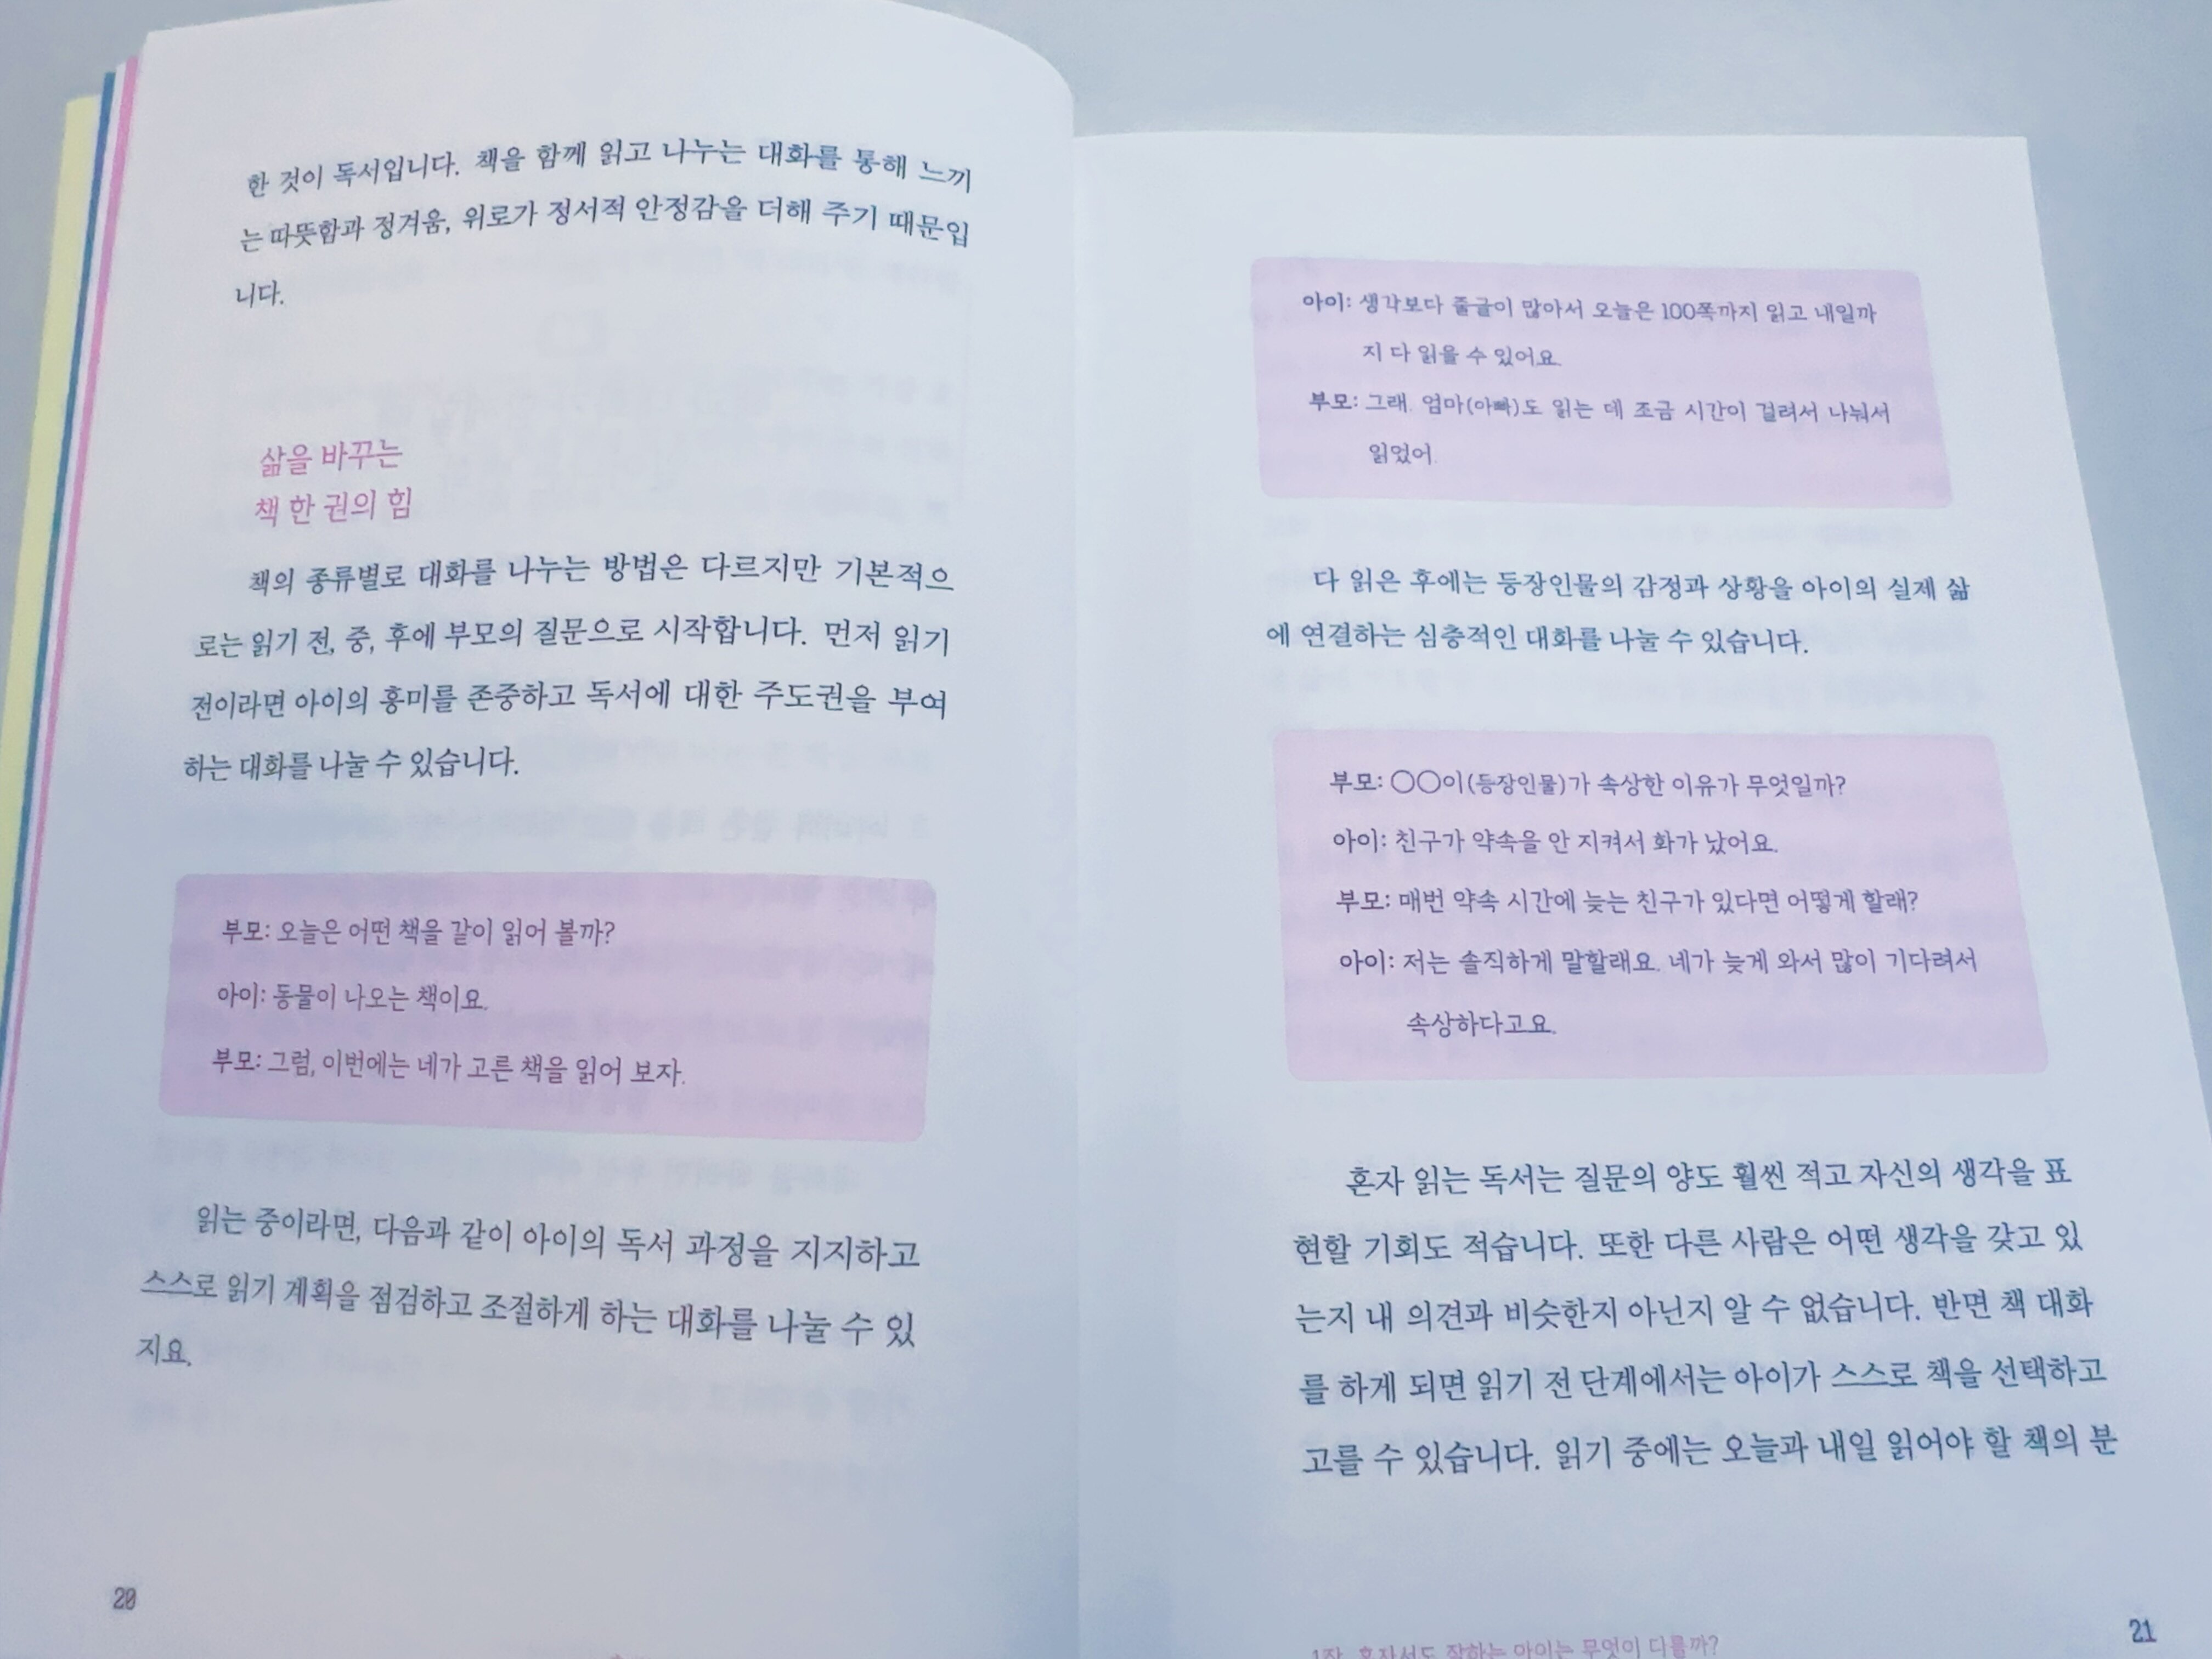 한 것이 독서입니다. 책을 함께 읽고 나누는 대화를 통해 느끼
는 따뜻함과 정겨움, 위로가 정서적 안정감을 더해 주기 때문입
니다.
삶을 바꾸는
책 한 권의 힘
책의 종류별로 대화를 나누는 방법은 다르지만 기본적으
로는 읽기 전, 중, 후에 부모의 질문으로 시작합니다. 먼저 읽기
전이라면 아이의 흥미를 존중하고 독서에 대한 주도권을 부여
하는 대화를 나눌 수 있습니다.
부모: 오늘은 어떤 책을 같이 읽어 볼까?
아이: 동물이 나오는 책이요.
부모: 그럼, 이번에는 네가 고른 책을 읽어 보자.
읽는 중이라면, 다음과 같이 아이의 독서 과정을 지지하고
스스로 읽기 계획을 점검하고 조절하게 하는 대화를 나눌 수 있
지요.
20
아이: 생각보다 줄글이 많아서 오늘은 100쪽까지 읽고 내일까
지 다 읽을 수 있어요.
부모: 그래. 엄마(아빠)도 읽는 데 조금 시간이 걸려서 나눠서
읽었어.
다 읽은 후에는 등장인물의 감정과 상황을 아이의 실제 삶
에 연결하는 심층적인 대화를 나눌 수 있습니다.
부모: ○○이(등장인물)가 속상한 이유가 무엇일까?
아이: 친구가 약속을 안 지켜서 화가 났어요.
부모: 매번 약속 시간에 늦는 친구가 있다면 어떻게 할래?
아이: 저는 솔직하게 말할래요. 네가 늦게 와서 많이 기다려서
속상하다고요.
혼자 읽는 독서는 질문의 양도 훨씬 적고 자신의 생각을 표
현할 기회도 적습니다. 또한 다른 사람은 어떤 생각을 갖고 있
는지 내 의견과 비슷한지 아닌지 알 수 없습니다. 반면 책 대화
를 하게 되면 읽기 전 단계에서는 아이가 스스로 책을 선택하고
고를 수 있습니다. 읽기 중에는 오늘과 내일 읽어야 할 책의 분
1장. 혼자서도 잘하는 아이는 무엇이 다를까?
21